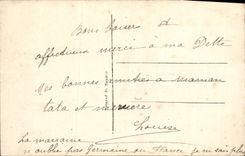 Bons baisers et
affectueux merci à ma Dette
Mes bonnes amitiés à maman
tata et
Louise
La marraine
n oublie pas Germaine ou France je ne sais plus